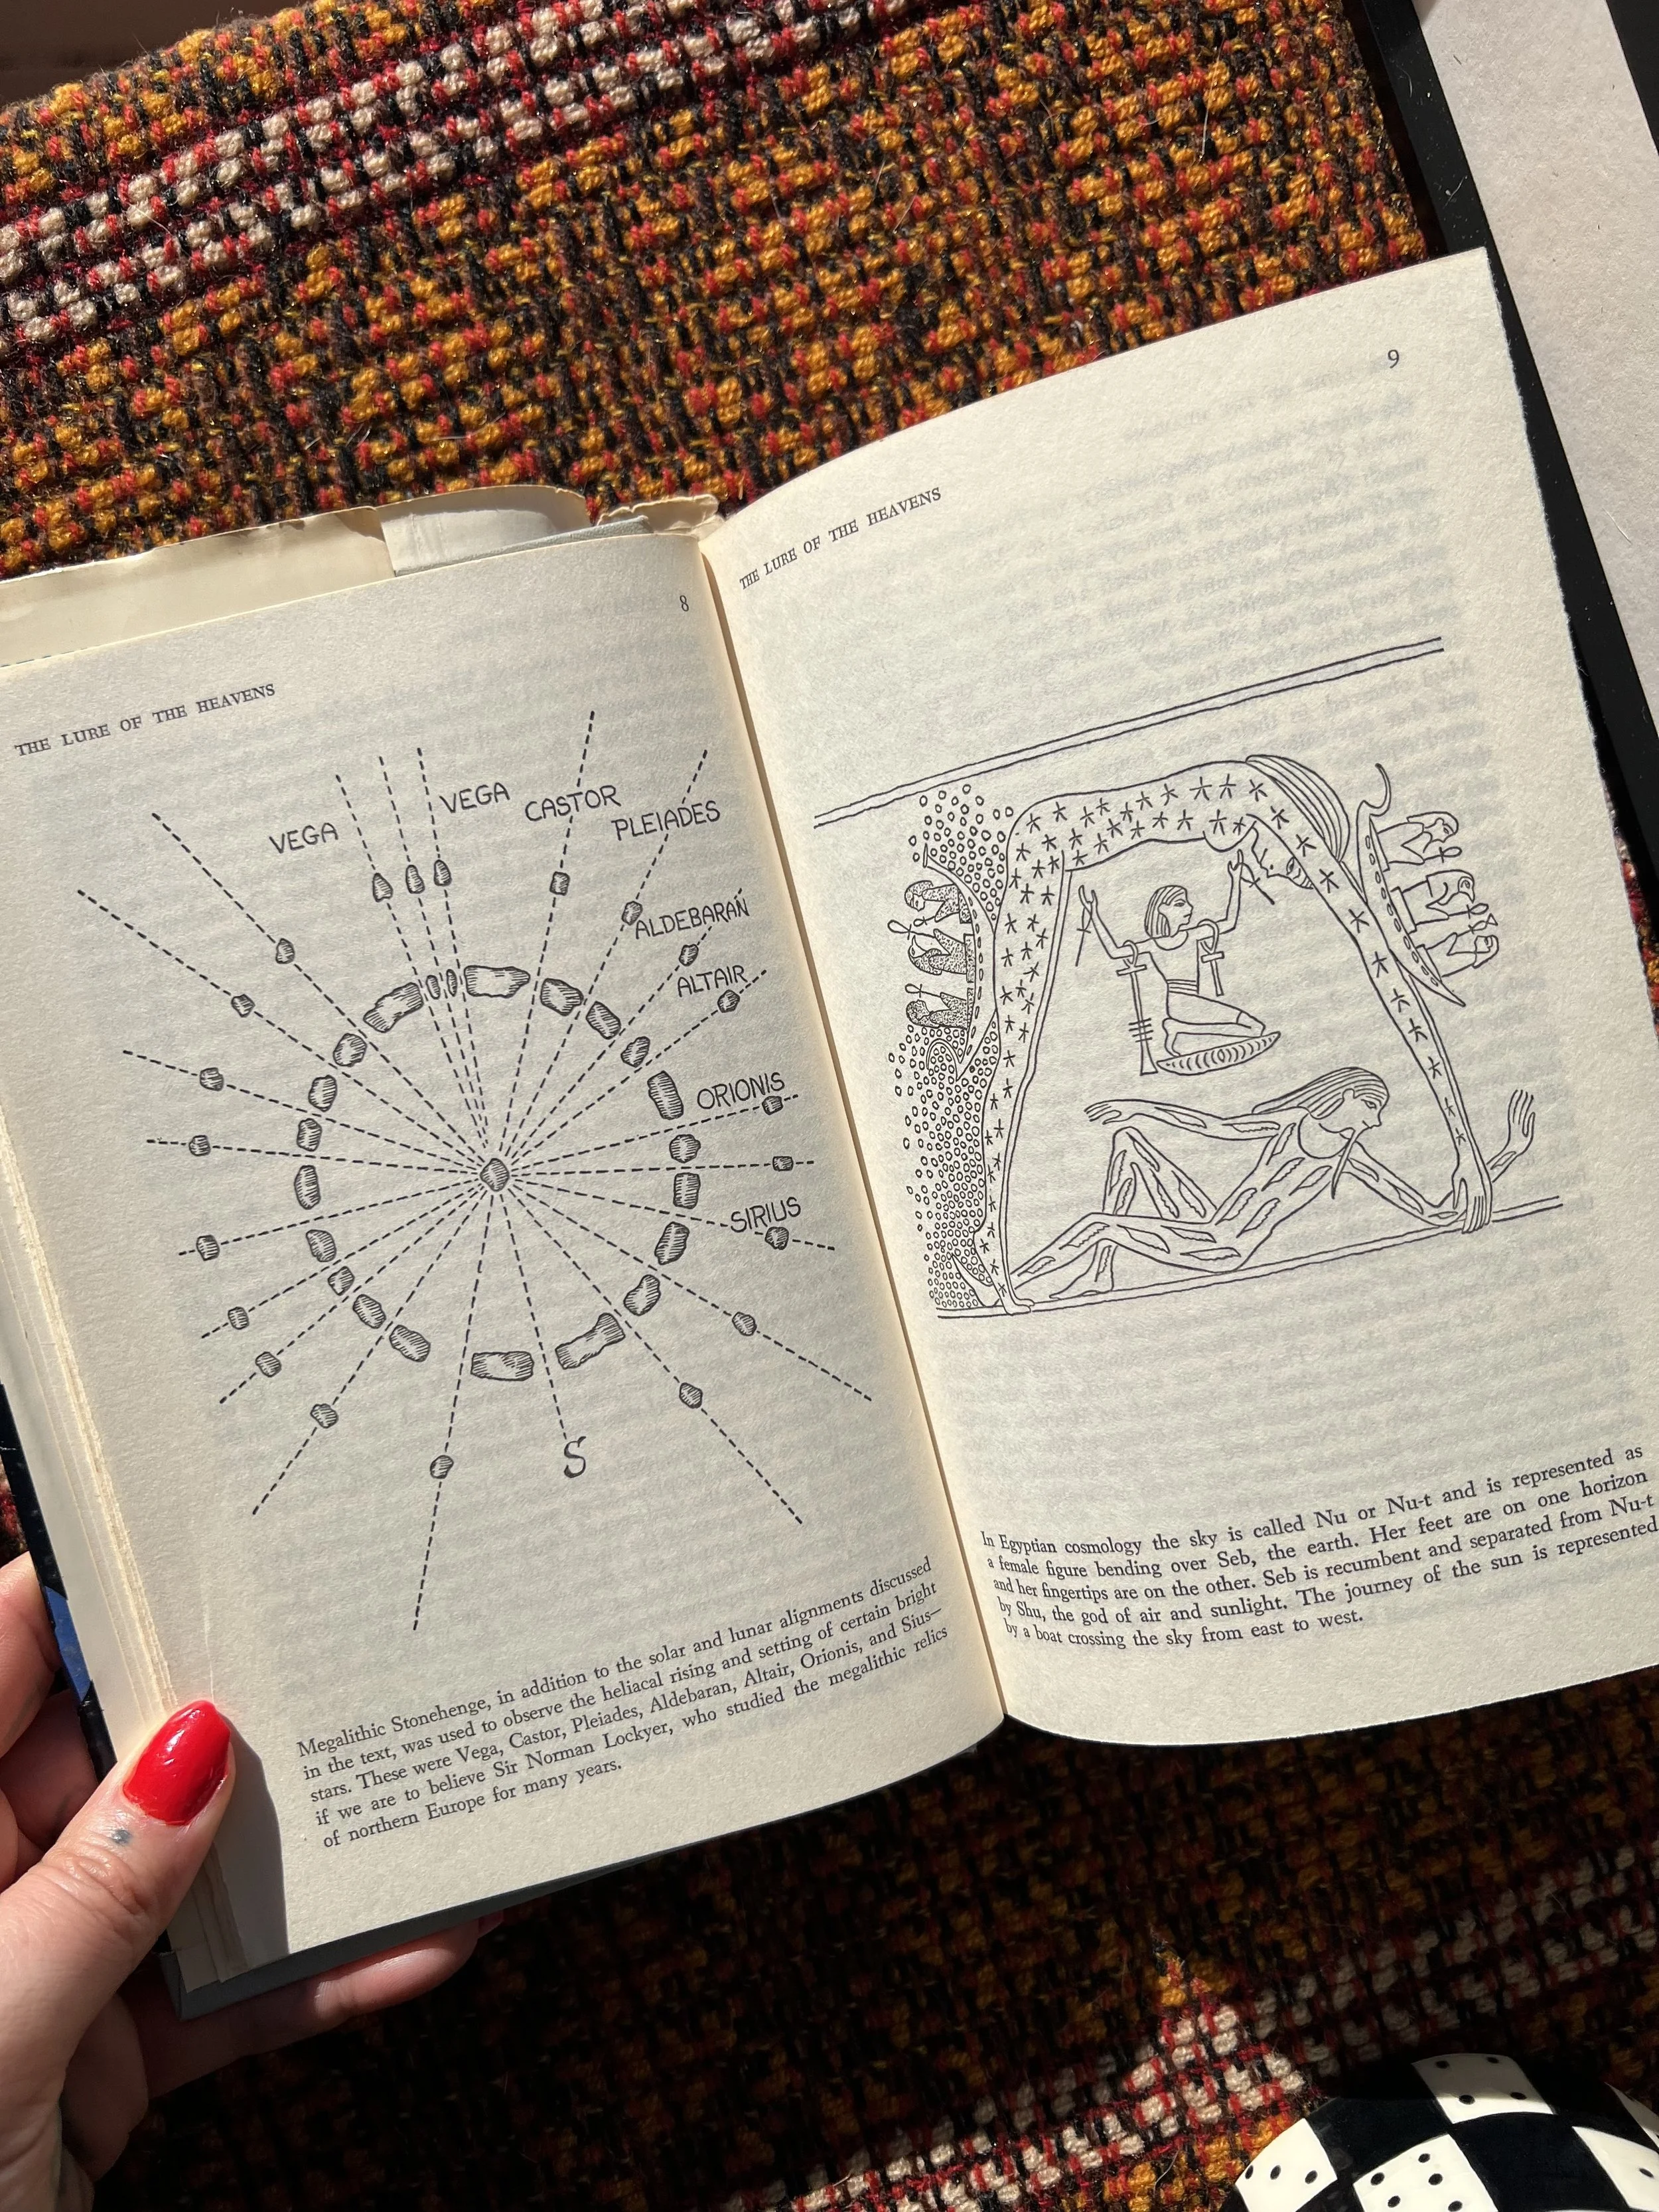 8
THE LURE OF THE HEAVENS
VEGA
VEGA
CASTOR
PLEIADES
ALDEBARAN
ALTAIR
ORIONIS
SIRIUS
S
Megalithic Stonehenge, in addition to the solar and lunar alignments discussed
in the text, was used to observe the heliacal rising and setting of certain bright
stars. These were Vega, Castor, Pleiades, Aldebaran, Altair, Orionis, and Sius—
if we are to believe Sir Norman Lockyer, who studied the megalithic relics
of northern Europe for many years.
9
THE LURE OF THE HEAVENS
In Egyptian cosmology the sky is called Nu or Nu-t and is represented as
a female figure bending over Seb, the earth. Her feet are on one horizon
and her fingertips are on the other. Seb is recumbent and separated from Nu-t
by Shu, the god of air and sunlight. The journey of the sun is represented
by a boat crossing the sky from east to west.